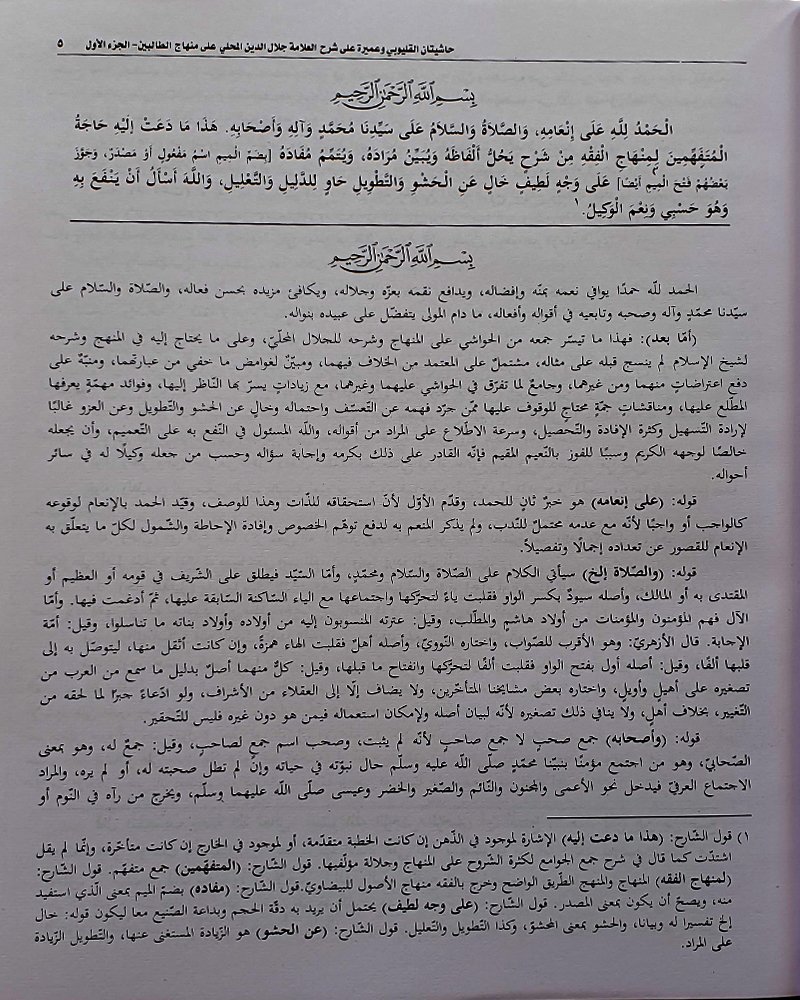 حاشيتان القليوبي وعميرة على شرح العلامة جلال الدين المحلي على منهاج الطالبين - الجزء الأول ٥
بِسْمِ اللَّهِ الرَّحْمَنِ الرَّحِيمِ
الْحَمْدُ لِلَّهِ عَلَى إِنْعَامِهِ، وَالصَّلَاةُ وَالسَّلَامُ عَلَى سَيِّدِنَا مُحَمَّدٍ وَآلِهِ وَأَصْحَابِهِ. هَذَا مَا دَعَتْ إِلَيْهِ حَاجَةُ
الْمُتَفَهِّمِينَ لِمِنْهَاجِ الْفِقْهِ مِنْ شَرْحٍ يَحُلُّ أَلْفَاظَهُ وَيُبَيِّنُ مُرَادَهُ، وَيُتَمِّمُ مُفَادَهُ [بِضَمِّ الْمِيمِ اسْمُ مَفْعُولٍ أَوْ مَصْدَرٌ، وَجَوَّزَ
بَعْضُهُمْ فَتْحَ الْمِيمِ أَيْضًا] عَلَى وَجْهٍ لَطِيفٍ خَالٍ عَنِ الْحَشْوِ وَالتَّطْوِيلِ حَاوٍ لِلدَّلِيلِ وَالتَّعْلِيلِ، وَاللَّهَ أَسْأَلُ أَنْ يَنْفَعَ بِهِ
وَهُوَ حَسْبِي وَنِعْمَ الْوَكِيلُ.١
بِسْمِ اللَّهِ الرَّحْمَنِ الرَّحِيمِ
الحمد للّه حمدًا يوافي نعمه بمنّه وإفضاله، ويدافع نقمه بعزّه وجلاله، ويكافئ مزيده بحسن فعاله، والصّلاة والسّلام على
سيّدنا محمّدٍ وآله وصحبه وتابعيه في أقواله وأفعاله، ما دام المولى يتفضّل على عبيده بنواله.
(أمّا بعد): فهذا ما تيسّر جمعه من الحواشي على المنهاج وشرحه للجلال المحلّيّ، وعلى ما يحتاج إليه في المنهج وشرحه
لشيخ الإسلام لم ينسج قبله على مثاله، مشتملٌ على المعتمد من الخلاف فيهما، ومبيّنٌ لغوامض ما خفي من عبارتهما، ومنبّهٌ على
دفع اعتراضاتٍ منهما ومن غيرهما، وجامعٌ لما تفرّق في الحواشي عليهما وغيرهما، مع زياداتٍ يسرّ بها النّاظر إليها، وفوائد مهمّةٍ يعرفها
المطّلع عليها، ومناقشاتٍ جمّةٍ محتاجٍ للوقوف عليها ممّن جرّد فهمه عن التّعسّف واحتماله وخالٍ عن الحشو والتّطويل وعن العزو غالبًا
لإرادة التّسهيل وكثرة الإفادة والتّحصيل، وسرعة الاطّلاع على المراد من أقواله، واللّه المسئول في النّفع به على التّعميم، وأن يجعله
خالصًا لوجهه الكريم وسببًا للفوز بالنّعيم المقيم فإنّه القادر على ذلك بكرمه وإجابة سؤاله وحسب من جعله وكيلًا له في سائر
أحواله.
قوله: (على إنعامه) هو خبرٌ ثانٍ للحمد، وقدّم الأوّل لأنّ استحقاقه للذّات وهذا للوصف، وقيّد الحمد بالإنعام لوقوعه
كالواجب أو واجبًا لأنّه مع عدمه محتملٌ للنّدب، ولم يذكر المنعم به لدفع توهّم الخصوص وإفادة الإحاطة والشّمول لكلّ ما يتعلّق به
الإنعام للقصور عن تعداده إجمالًا وتفصيلًا.
قوله: (والصّلاة إلخ) سيأتي الكلام على الصّلاة والسّلام ومحمّدٍ، وأمّا السّيّد فيطلق على الشّريف في قومه أو العظيم أو
المقتدى به أو المالك، وأصله سيودٌ بكسر الواو فقلبت ياءً لتحرّكها واجتماعها مع الياء السّاكنة السّابقة عليها، ثمّ أدغمت فيها. وأمّا
الآل فهم المؤمنون والمؤمنات من أولاد هاشمٍ والمطّلب، وقيل: عترته المنسوبون إليه من أولاده وأولاد بناته ما تناسلوا، وقيل: أمّة
الإجابة. قال الأزهريّ: وهو الأقرب للصّواب، واختاره النّوويّ، وأصله أهلٌ فقلبت الهاء همزةً، وإن كانت أثقل منها، ليتوصّل به إلى
قلبها ألفًا، وقيل: أصله أول بفتح الواو فقلبت ألفًا لتحرّكها وانفتاح ما قبلها، وقيل: كلٌّ منهما أصلٌ بدليل ما سمع من العرب من
تصغيره على أهيلٍ وأويلٍ، واختاره بعض مشايخنا المتأخّرين، ولا يضاف إلّا إلى العقلاء من الأشراف، ولو ادّعاءً جبرًا لما لحقه من
التّغيير، بخلاف أهلٍ، ولا ينافي ذلك تصغيره لأنّه لبيان أصله ولإمكان استعماله فيمن هو دون غيره فليس للتّحقير.
قوله: (وأصحابه) جمع صحبٍ لا جمع صاحبٍ لأنّه لم يثبت، وصحب اسم جمعٍ لصاحبٍ، وقيل: جمعٌ له، وهو بمعنى
الصّحابيّ، وهو من اجتمع مؤمنًا بنبيّنا محمّدٍ صلّى اللّه عليه وسلّم حال نبوّته في حياته وإنْ لم تطل صحبته له، أو لم يره، والمراد
الاجتماع العرفيّ فيدخل نحو الأعمى والمجنون والنّائم والصّغير والخضر وعيسى صلّى اللّه عليهما وسلّم، ويخرج من رآه في النّوم أو
١) قول الشّارح: (هذا ما دعت إليه) الإشارة لموجود في الذّهن إن كانت الخطبة متقدّمة، أو لموجود في الخارج إن كانت متأخّرة، وإنّما لم يقل
اشتدّت كما قال في شرح جمع الجوامع لكثرة الشّروح على المنهاج وجلالة مؤلّفيها. قول الشّارح: (المتفهّمين) جمع متفهّم. قول الشّارح:
(لمنهاج الفقه) المنهاج والمنهج الطّريق الواضح وخرج بالفقه منهاج الأصول للبيضاويّ.قول الشّارح: (مفاده) بضمّ الميم بمعنى الّذي استفيد
منه، ويصحّ أن يكون بمعنى المصدر. قول الشّارح: (على وجه لطيف) يحتمل أن يريد به دقّة الحجم وبداعة الصّنيع معا ليكون قوله: حال
إلخ تفسيرا له وبيانا، والحشو بمعنى المحشوّ، وكذا التّطويل والتّعليل. قول الشّارح: (عن الحشو) هو الزّيادة المستغنى عنها، والتّطويل الزّيادة
على المراد.